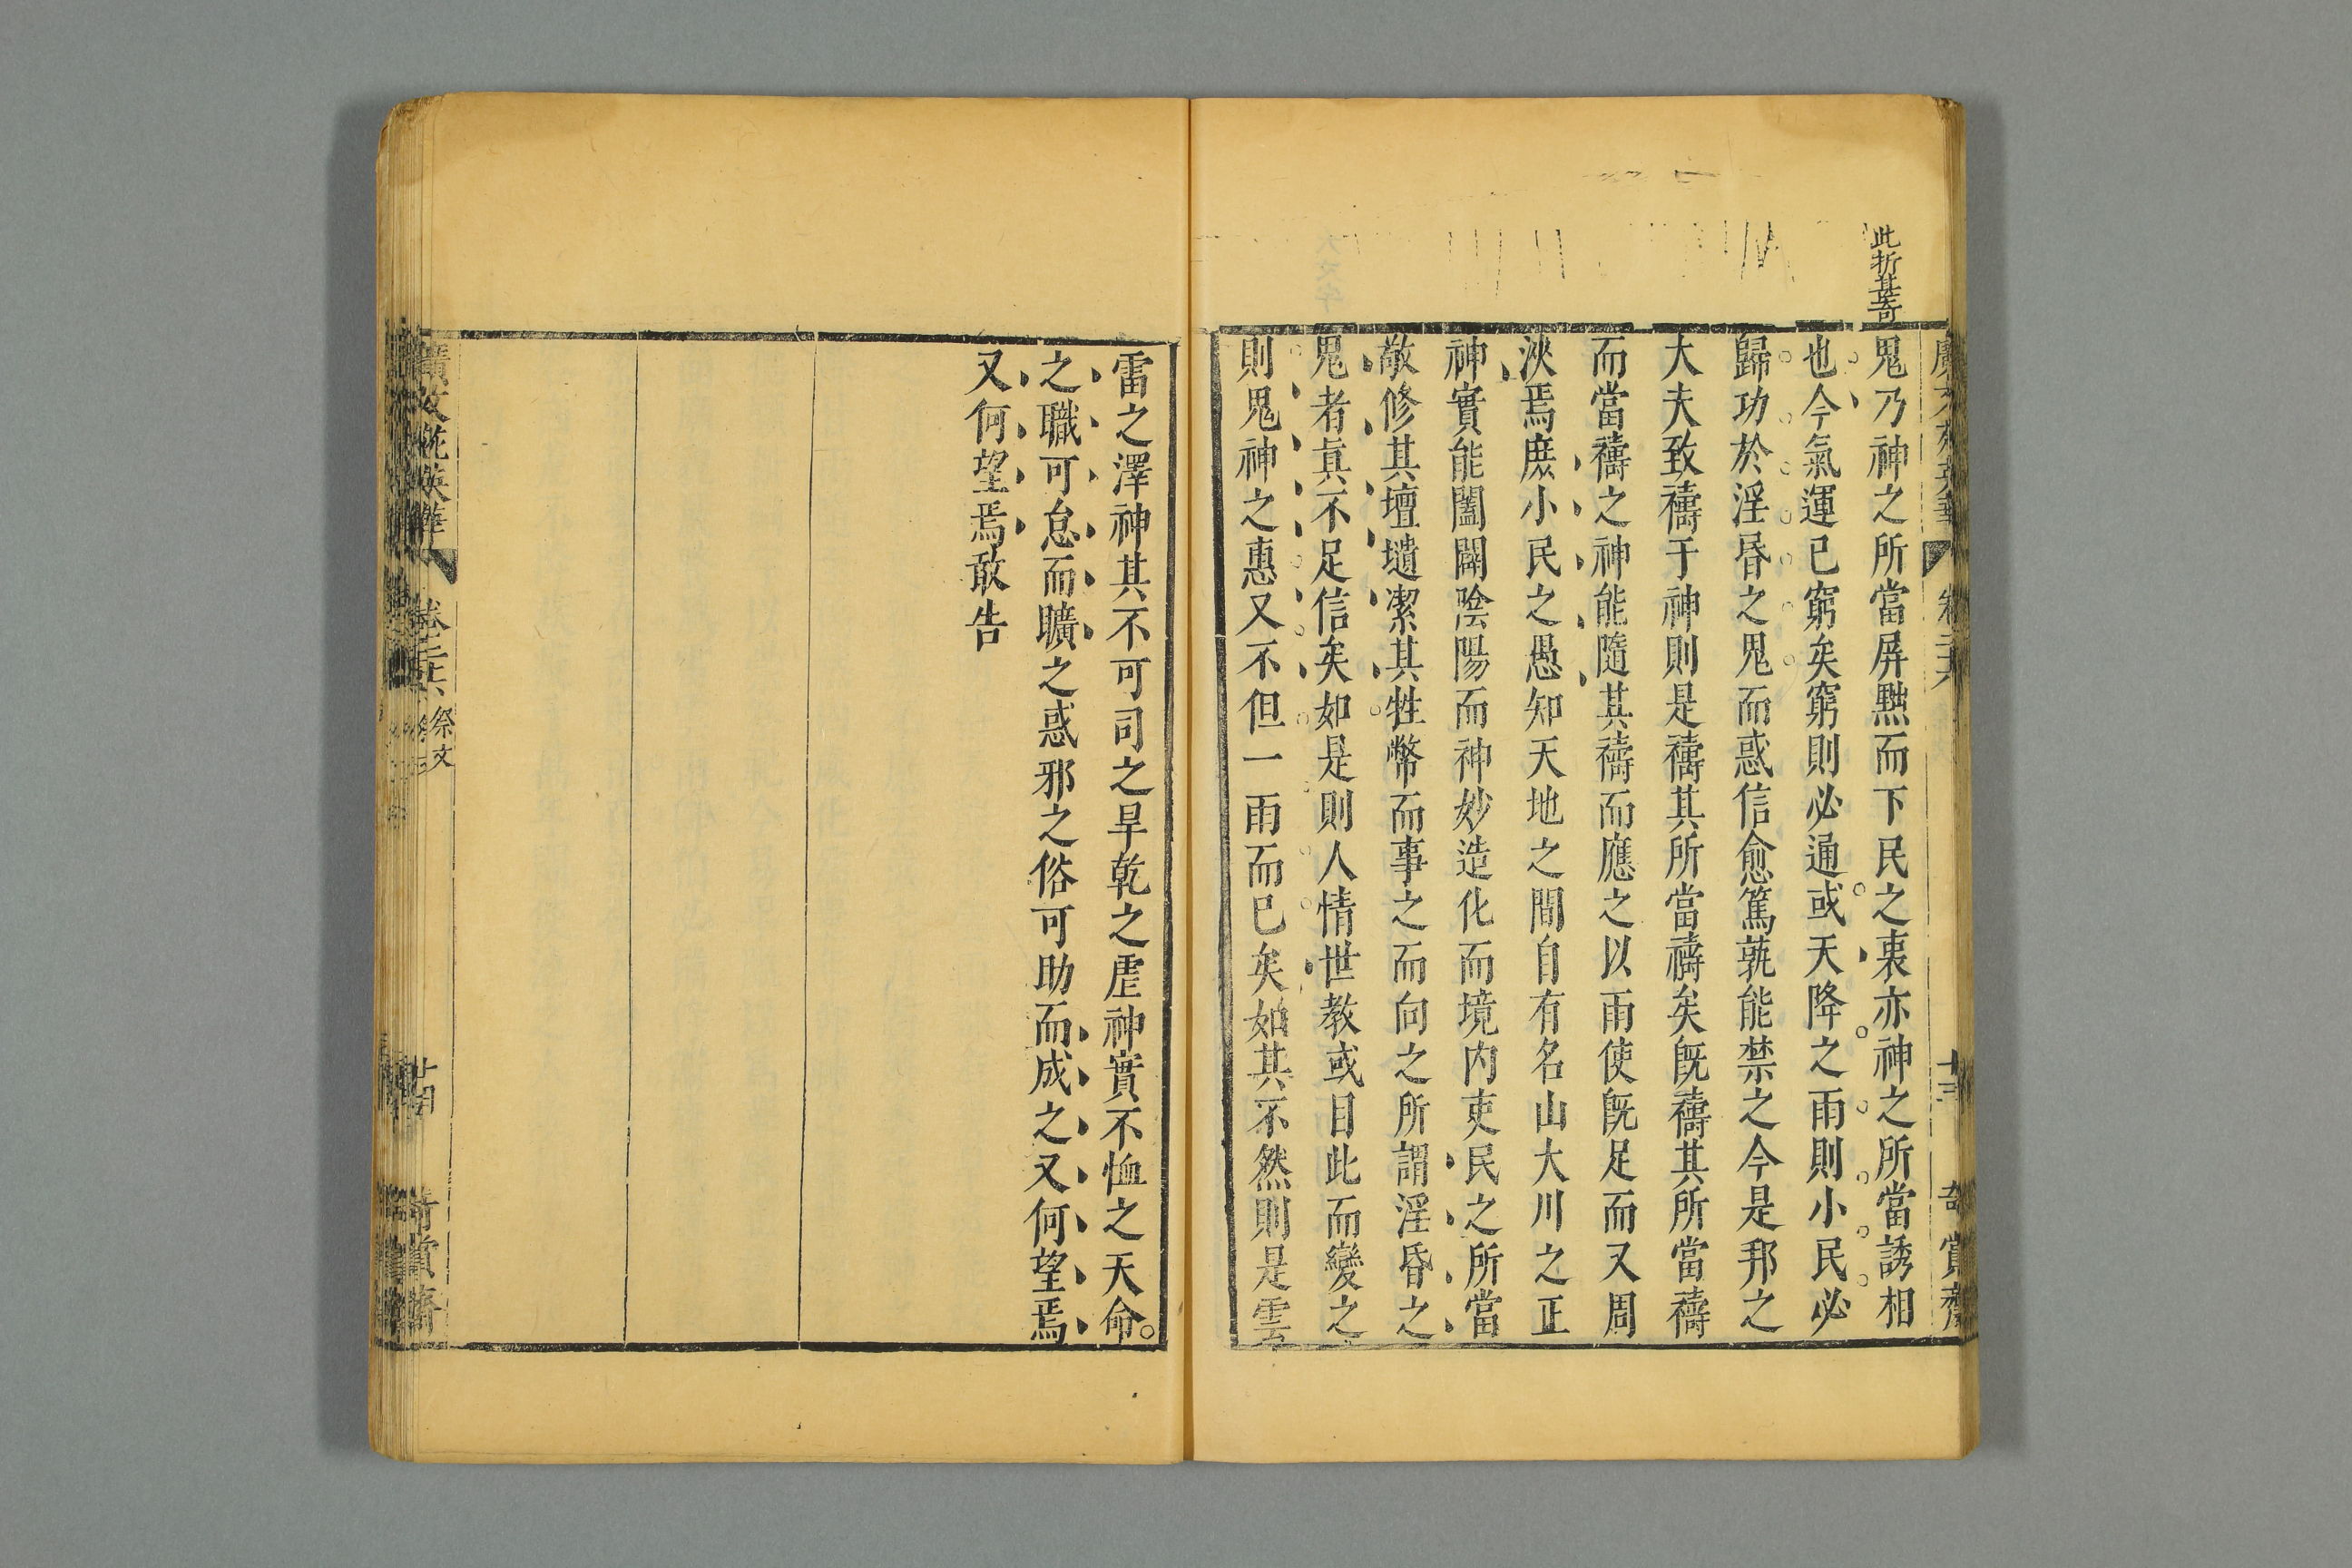 此折甚奇
鬼乃神之所當屏黜而下民之衷亦神之所當誘相
也今氣運已窮矣窮則必通或天降之雨則小民必
歸功於淫昏之鬼而惑信愈篤孰能禁之今是邦之
大夫致禱于神則是禱其所當禱矣既禱其所當禱
而當禱之神能隨其禱而應之以雨使既足而又周
浹焉庶小民之愚知天地之間自有名山大川之正
神實能闔闢陰陽而神妙造化而境內吏民之所當
敬修其壇壝潔其牲幣而事之而向之所謂淫昏之
鬼者眞不足信矣如是則人情世教或目此而變之
則鬼神之惠又不但一雨而已矣如其不然則是雲
雷之澤神其不可司之旱乾之虐神實不恤之天命
之職可怠而曠之惑邪之俗可助而成之又何望焉
又何望焉敢告
廣文苑英華
卷二十六
祭文
奇賞齋